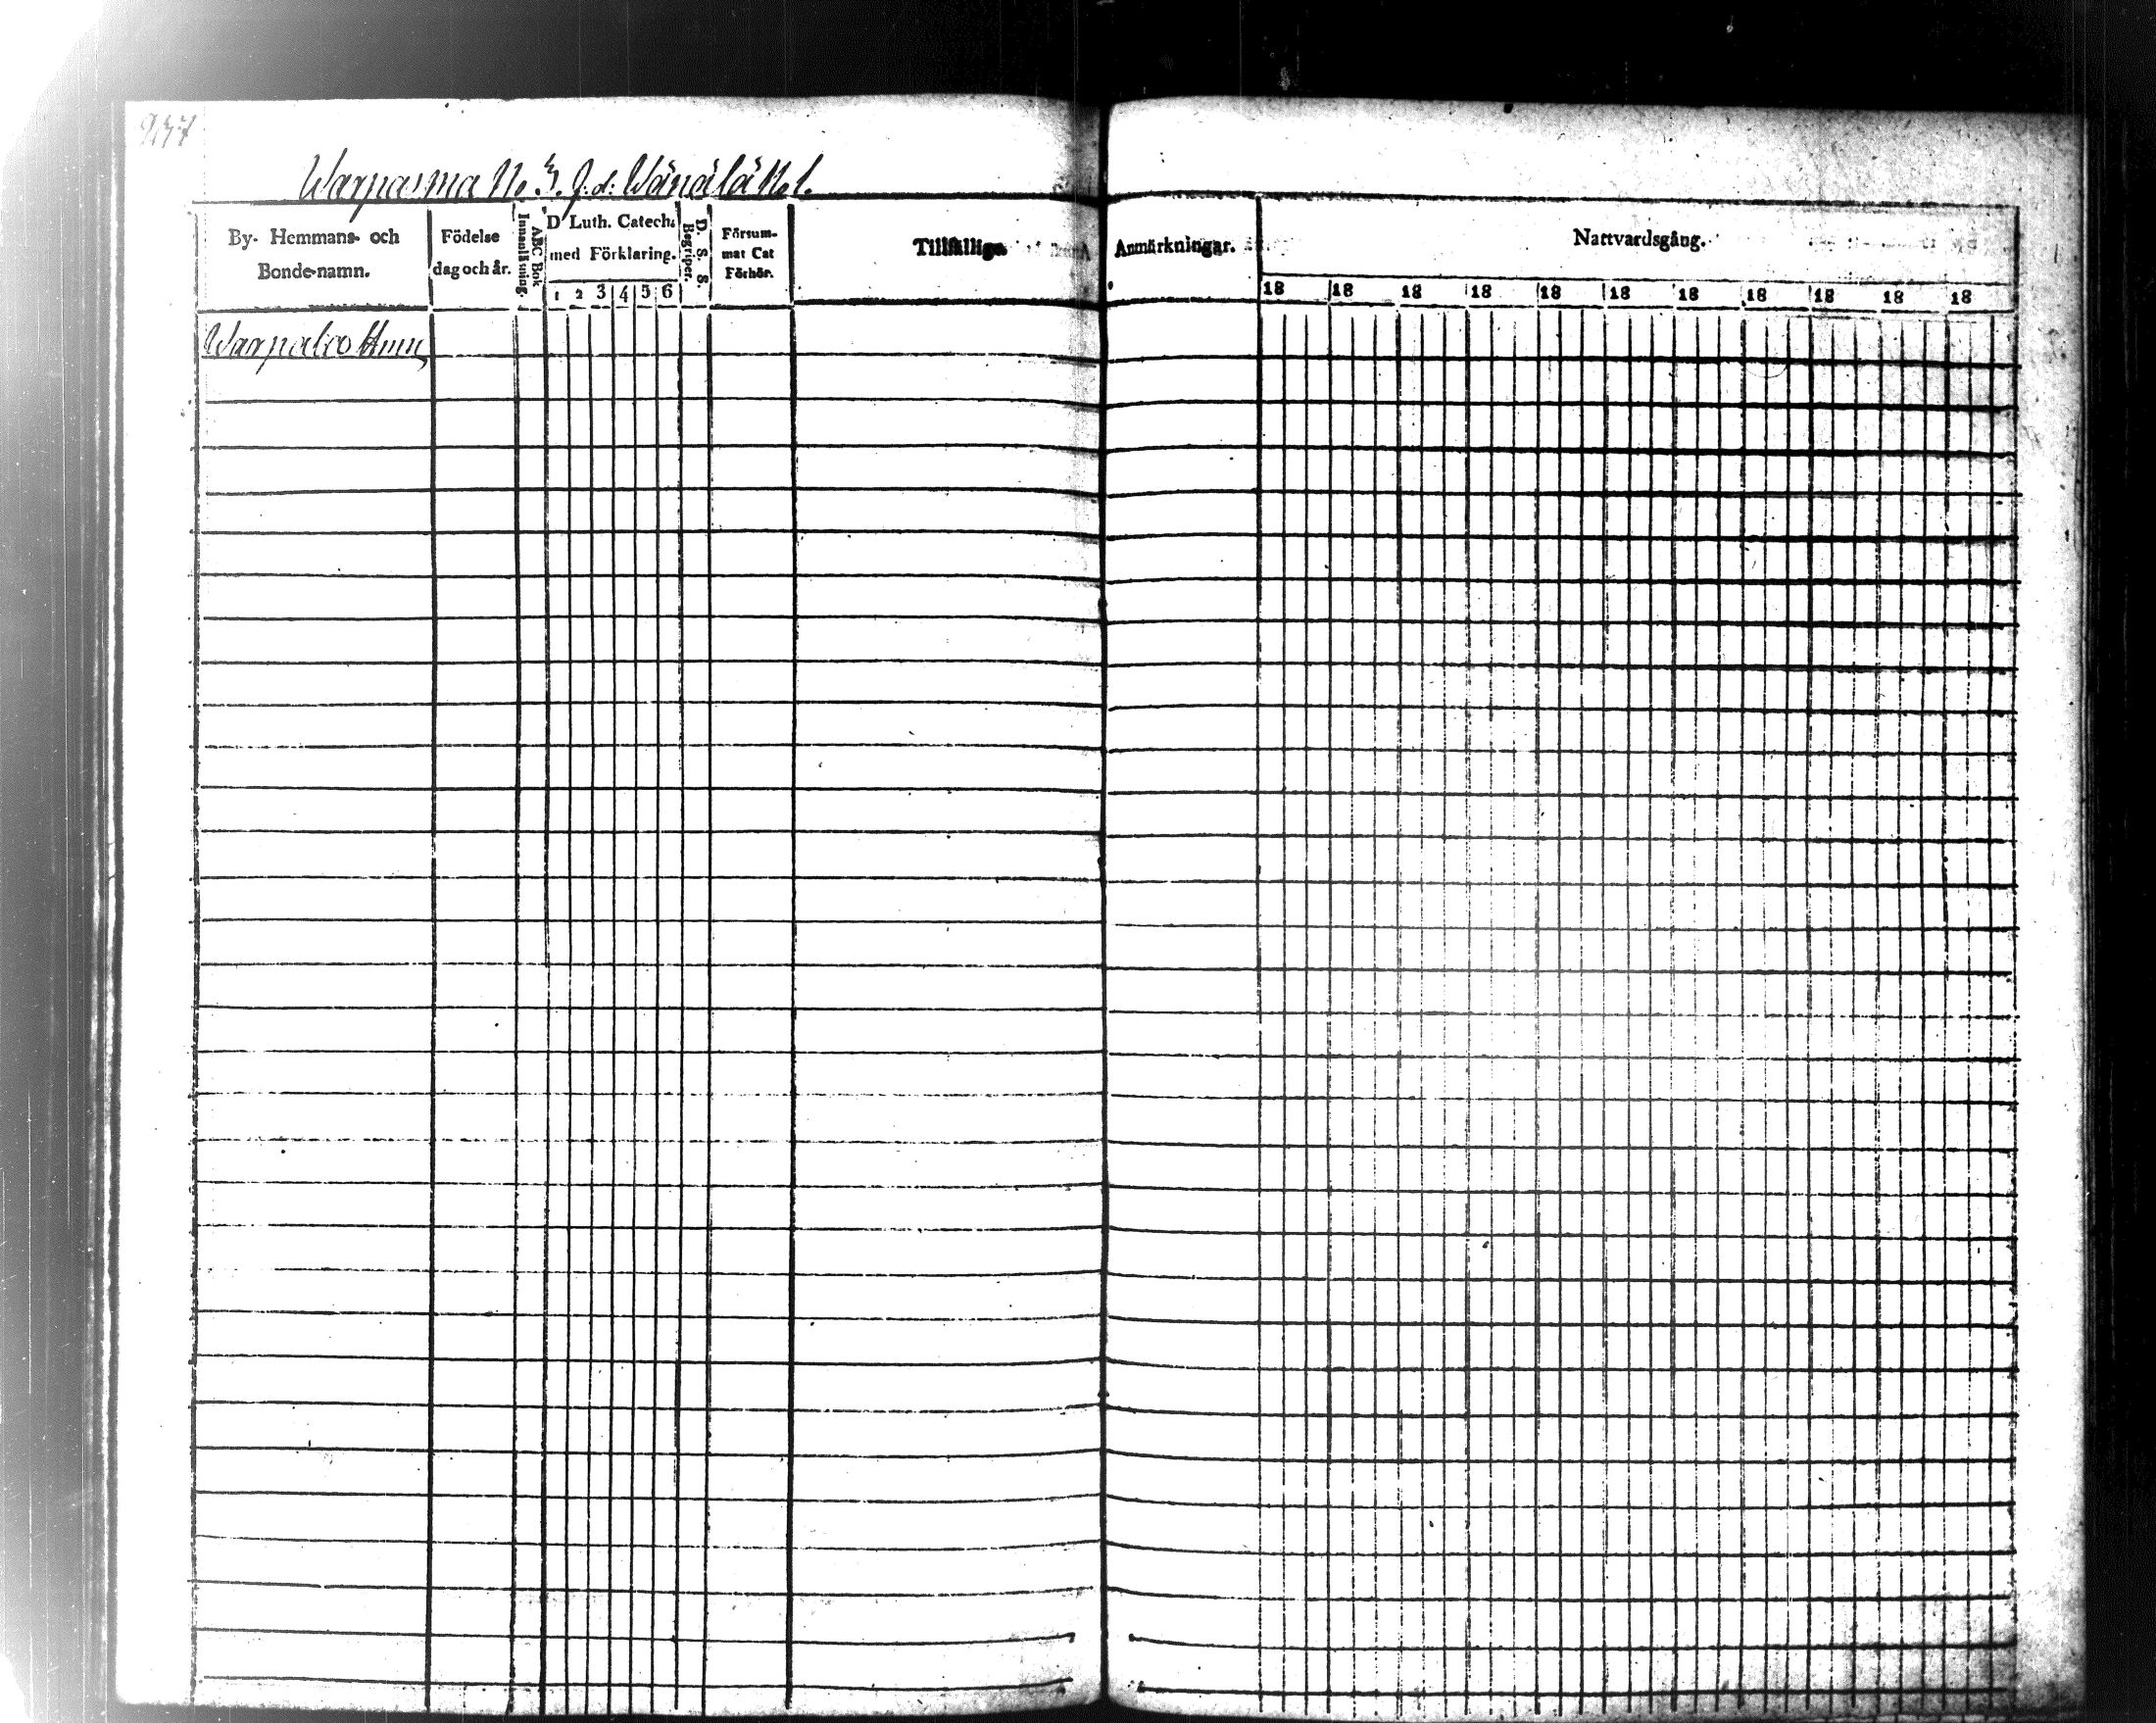 Warpasma No 3.
By- Hemmans- och Bonde-namn.
Födelse dag och år.
Innanläsning.
ABC Bok
D Luth. Catech. med Förklaring.
1 2 3 4 5 6
D. S. S. Begriper.
Försummat Cat Förhör.
Tillfällige
Anmärkningar.
Nattvardsgång.
18 18 18 18 18 18 18 18 18 18 18